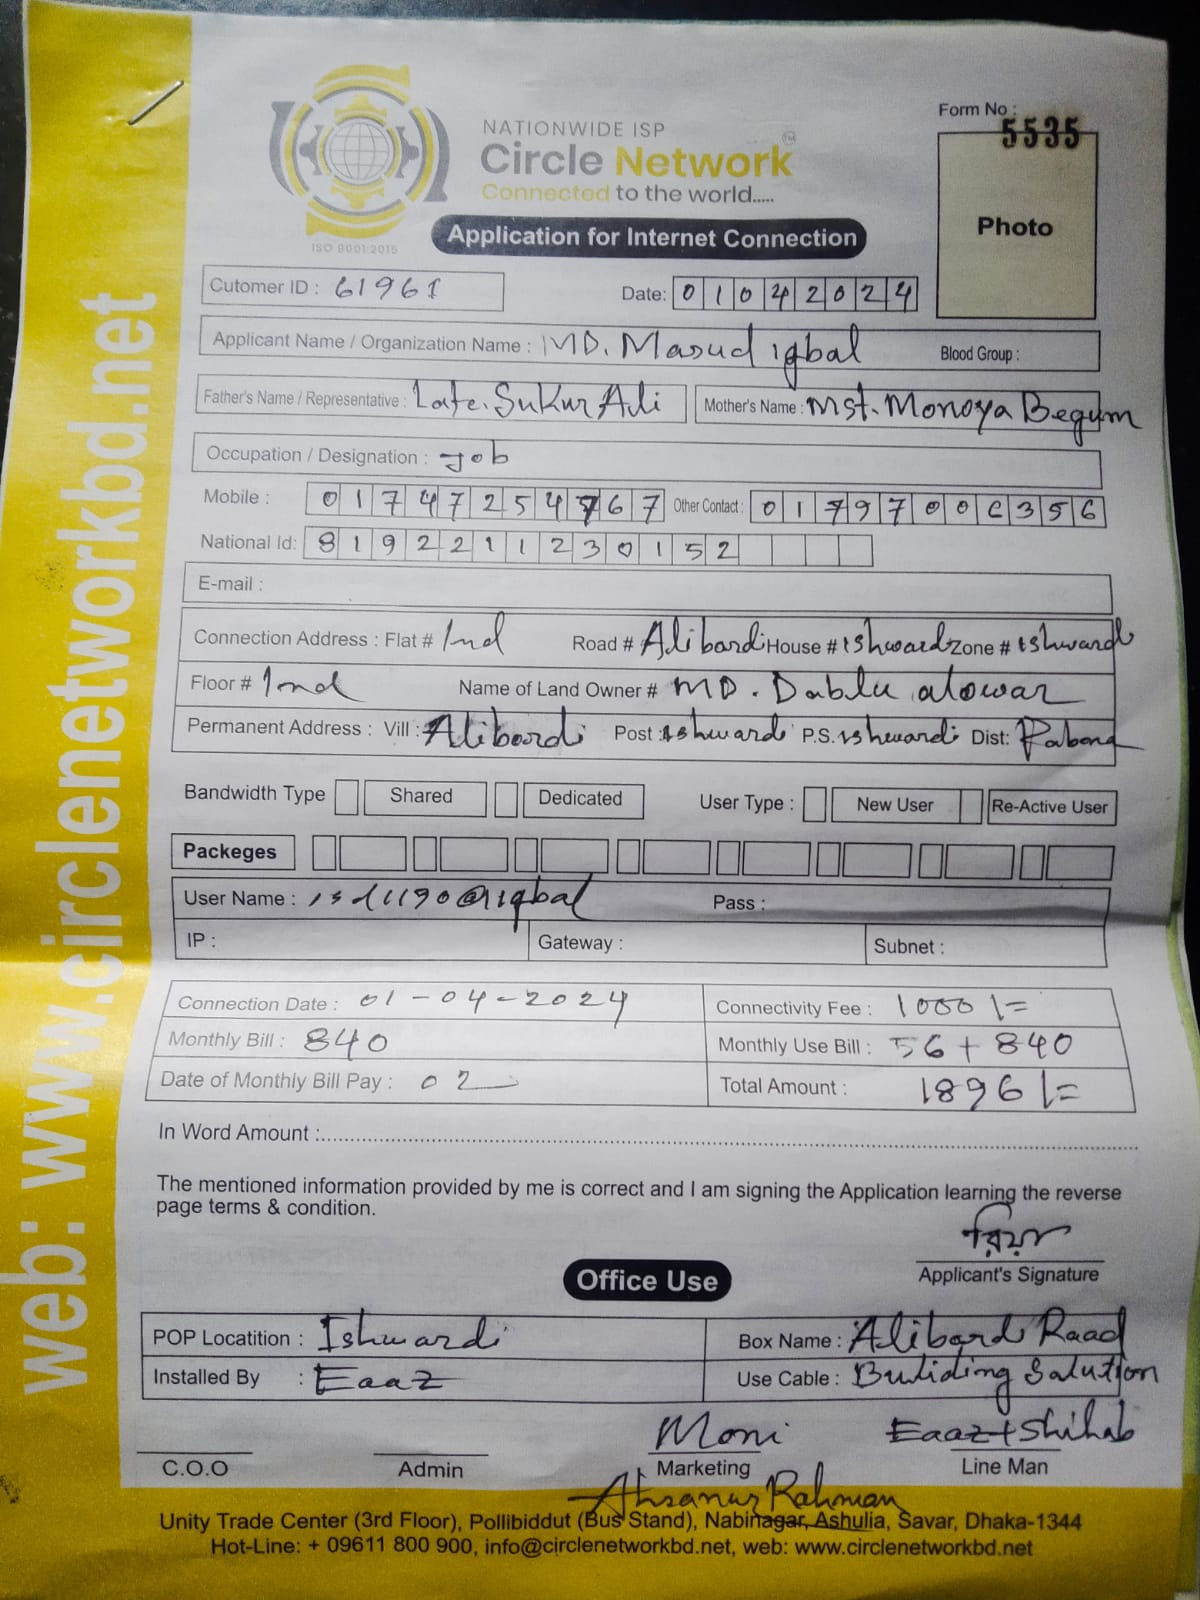 Form No : 5535
NATIONWIDE ISP
Circle Network TM
Connected to the world.....
ISO 9001:2015
Application for Internet Connection
Photo
Cutomer ID : 61961
Date: 01042024
Applicant Name / Organization Name : MD. Masud iqbal Blood Group :
Father's Name / Representative : Late. Sukur Ali Mother's Name : Mst. Monoya Begum
Occupation / Designation : Job
Mobile : 01747254767 Other Contact : 01797006356
National Id: 8192211230152
E-mail :
Connection Address : Flat # 1nd Road # Alibardi House # ishwardi Zone # ishwardi
Floor # 1nd Name of Land Owner # MD. Dablu alowar
Permanent Address : Vill : Alibardi Post : ishwardi P.S. ishwardi Dist: Pabona
Bandwidth Type Shared Dedicated User Type : New User Re-Active User
Packeges
User Name : isd1190@iqbal Pass :
IP : Gateway : Subnet :
Connection Date : 01-04-2024 Connectivity Fee : 1000/=
Monthly Bill : 840 Monthly Use Bill : 56+840
Date of Monthly Bill Pay : 02 Total Amount : 1896/=
In Word Amount :
The mentioned information provided by me is correct and I am signing the Application learning the reverse
page terms & condition.
Applicant's Signature
Office Use
POP Locatition : Ishwardi Box Name : Alibardi Raad
Installed By : Eaaz Use Cable : Buliding Salution
Moni Eaaz+Shihab
C.O.O Admin Marketing Line Man
Ahsanur Rahman
Unity Trade Center (3rd Floor), Pollibiddut (Bus Stand), Nabinagar, Ashulia, Savar, Dhaka-1344
Hot-Line: + 09611 800 900, info@circlenetworkbd.net, web: www.circlenetworkbd.net
web: www.circlenetworkbd.net